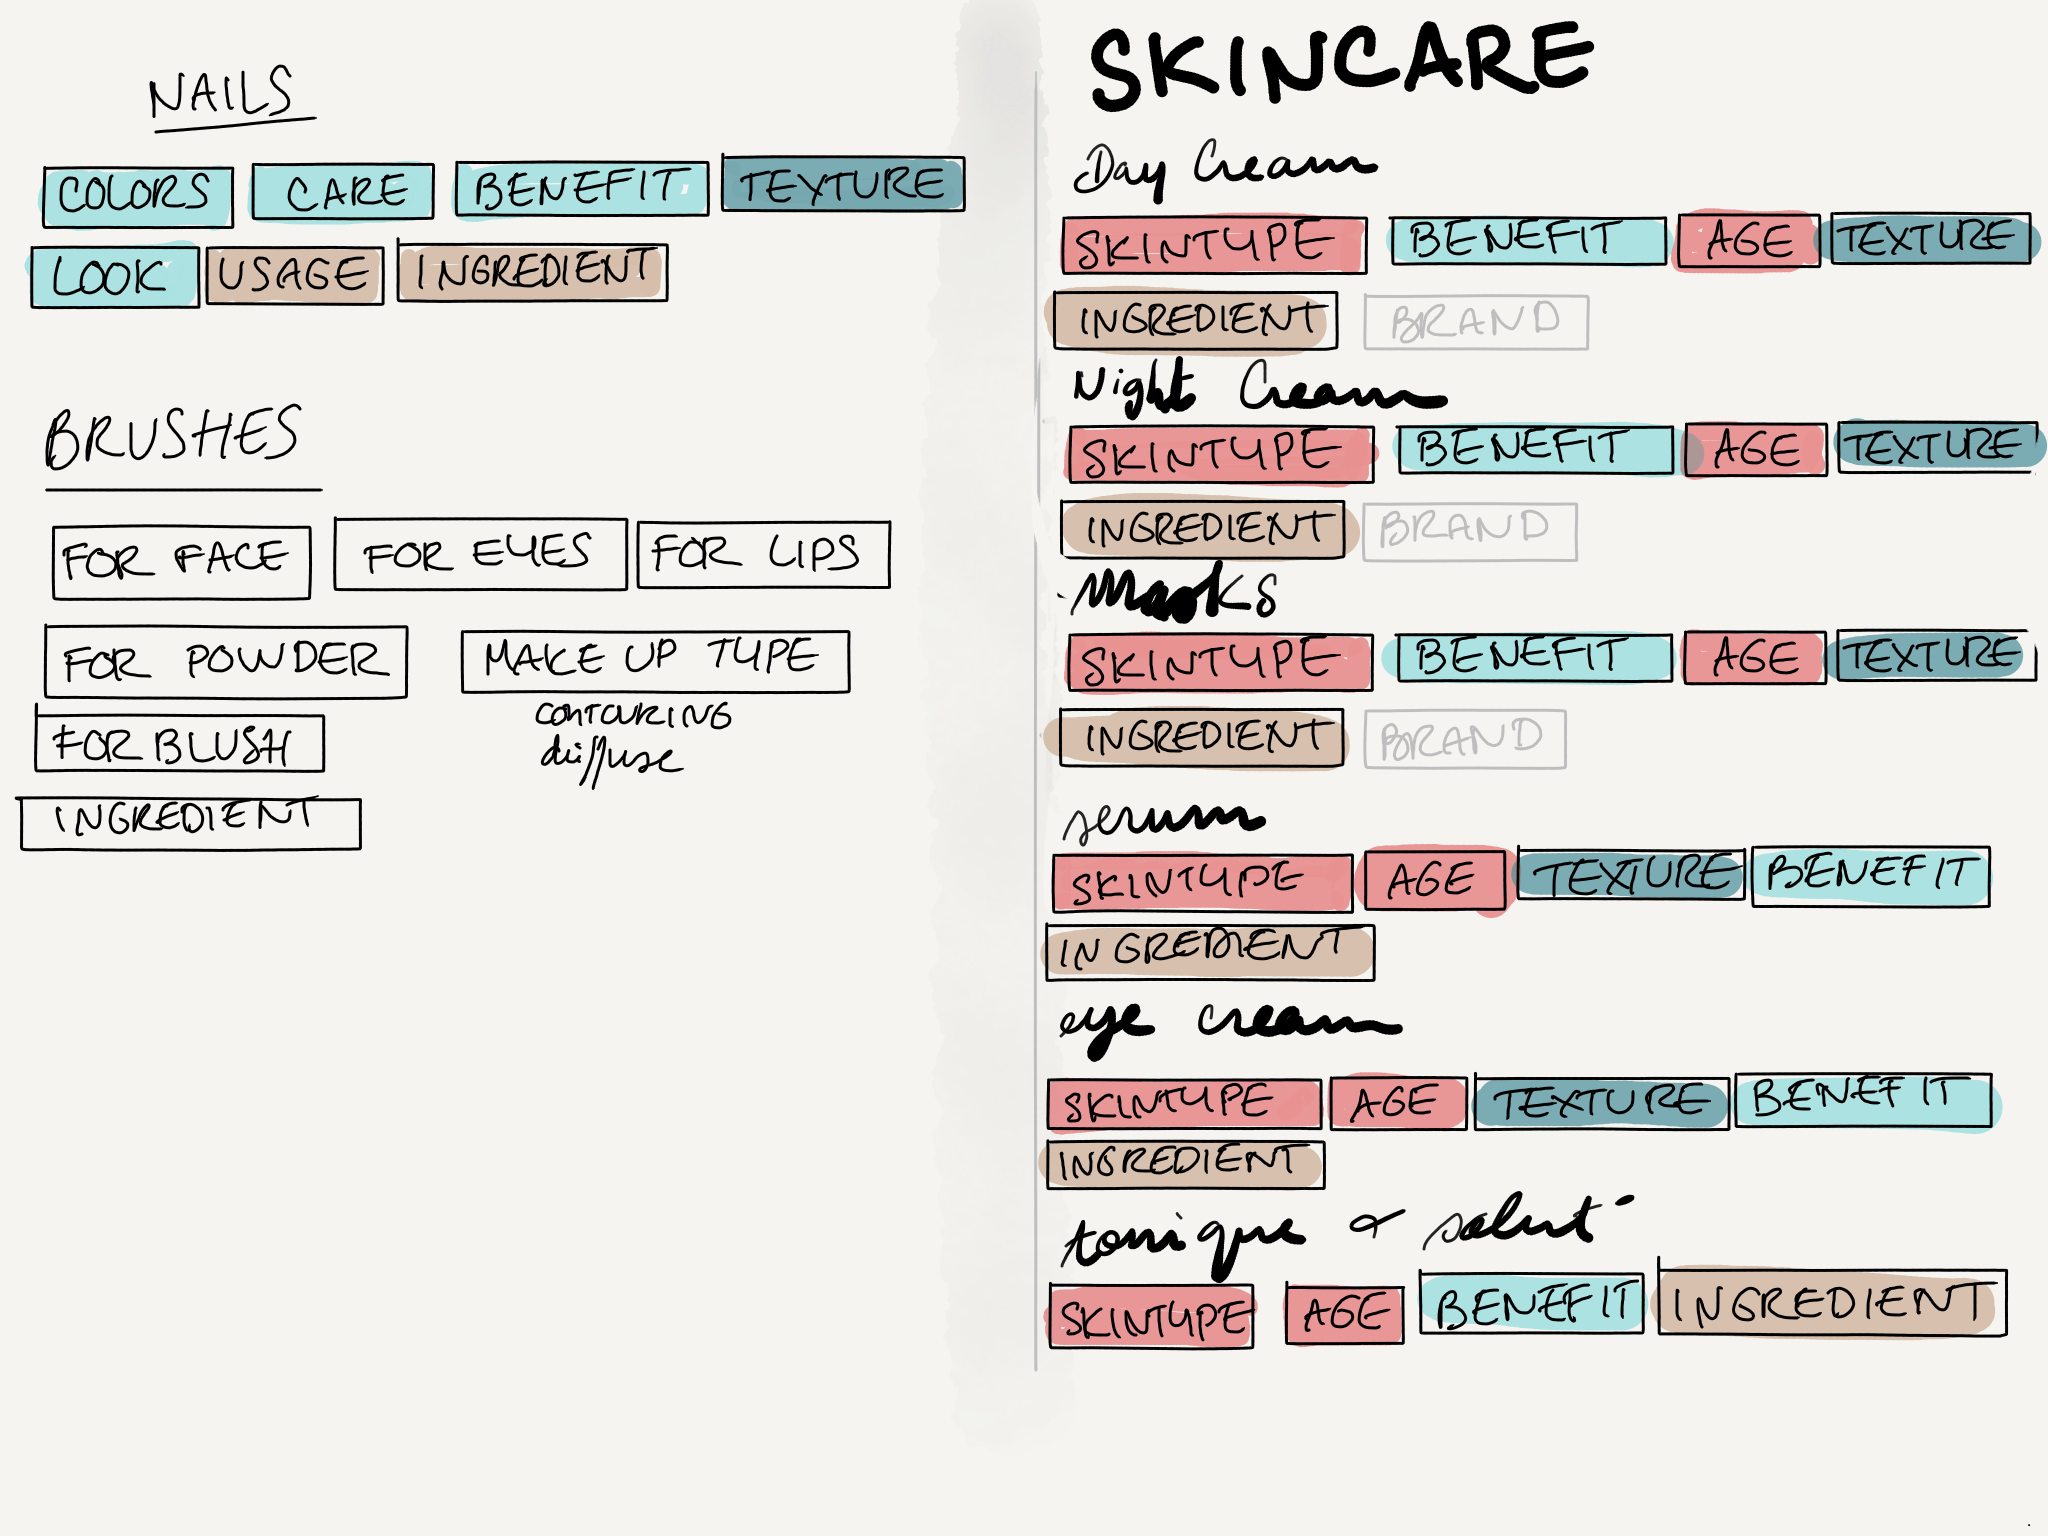 NAILS
COLORS CARE BENEFIT TEXTURE
LOOK USAGE INGREDIENT
BRUSHES
FOR FACE FOR EYES FOR LIPS
FOR POWDER MAKE UP TYPE
CONTOURING
diffuse
FOR BLUSH
INGREDIENT
SKINCARE
Day Cream
SKINTYPE BENEFIT AGE TEXTURE
INGREDIENT BRAND
Night Cream
SKINTYPE BENEFIT AGE TEXTURE
INGREDIENT BRAND
Masks
SKINTYPE BENEFIT AGE TEXTURE
INGREDIENT BRAND
serum
SKINTYPE AGE TEXTURE BENEFIT
INGREDIENT
eye cream
SKINTYPE AGE TEXTURE BENEFIT
INGREDIENT
tonique &
SKINTYPE AGE BENEFIT INGREDIENT